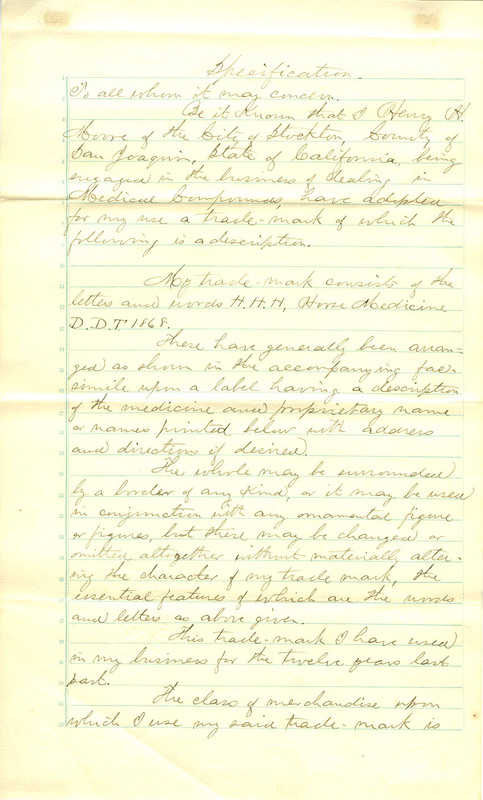 Specification.
To all whom it may concern.
Be it Known that I Henry H.
Moore of the City of Stockton, County of
San Joaquin, State of California, being
engaged in the business of dealing in
Medical Compounds, have adopted
for my use a trade-mark of which the
following is a description.
My trade-mark consists of the
letters and words H.H.H, Horse Medicine
D.D.T 1868.
These have generally been arran-
ged as shown in the accompanying fac-
simile upon a label having a description
of the medicine and proprietary name
or names printed below with address
and directions if desired.
The whole may be surrounded
by a border of any Kind, or it may be used
in conjunction with any ornamental figure
or figures, but these may be changed or
omitted altogether without materially alter-
ing the character of my trade mark, the
essential features of which are the words
and letters as above given.
This trade-mark I have used
in my business for the twelve years last
past.
The class of merchandise upon
which I use my said trade-mark is